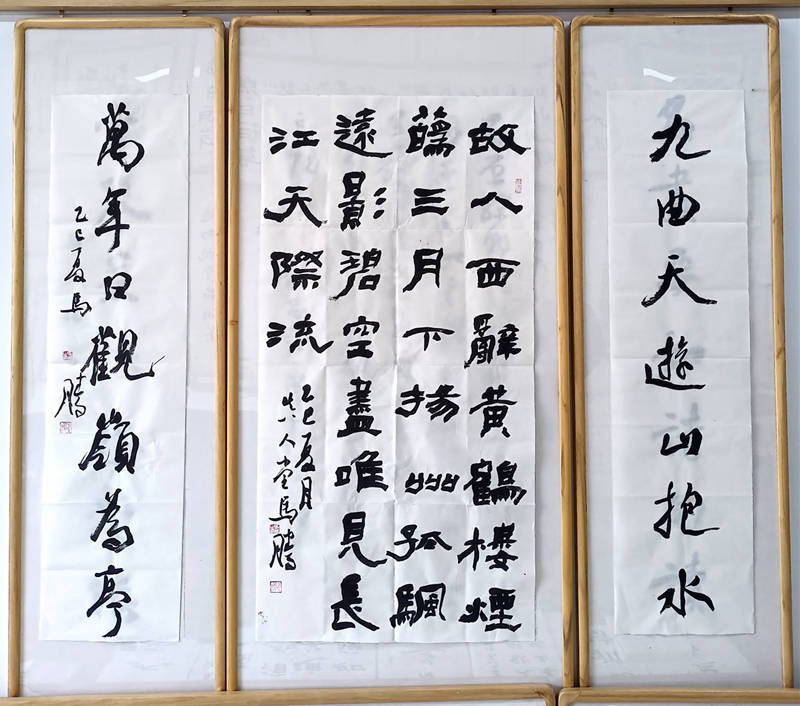 九曲天遊山抱水
故人西辭黃鶴樓煙
蘤三月下揚州孤颿
遠影碧空盡唯見長
江天際流
乙巳夏月
人堂馬騰
萬年日觀嶺為亭
乙巳夏馬
騰